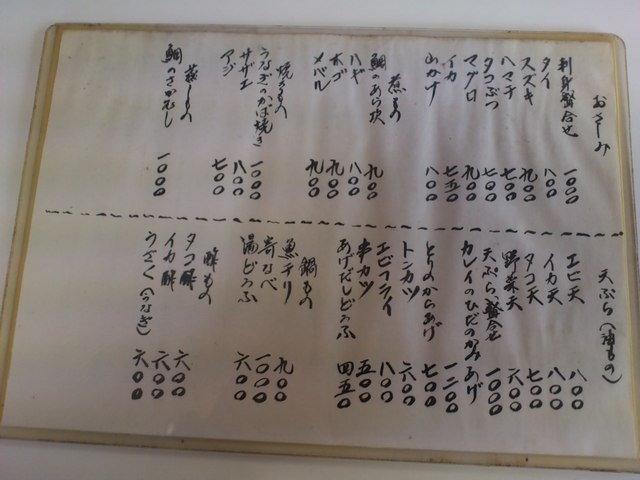 おさしみ
刺身盛合せ 一〇〇〇
タイ 八〇〇
スズキ 九〇〇
ハマチ 七〇〇
タコぶつ 七〇〇
マグロ 九〇〇
イカ 七五〇
山かけ 八〇〇
煮もの
鯛のあら炊 九〇〇
ハゲ 八〇〇
ホゴ 九〇〇
メバル 九〇〇
焼きもの
うなぎのかば焼き 一〇〇〇
サザエ 八〇〇
アジ 七〇〇
蒸しもの
鯛のさかむし 一〇〇〇
天ぷら(油もの)
エビ天 八〇〇
イカ天 八〇〇
タコ天 七〇〇
野菜天 六〇〇
天ぷら盛合せ 一〇〇〇
カレイのひだのからあげ 一二〇〇
とりのからあげ 七〇〇
トンカツ 六〇〇
エビフライ 八〇〇
串カツ 五〇〇
あげだしどうふ 四五〇
鍋もの
魚チリ 九〇〇
寄なべ 一〇〇〇
湯どうふ 六〇〇
酢もの
タコ酢 六〇〇
イカ酢 六〇〇
うざく(うなぎ) 六〇〇